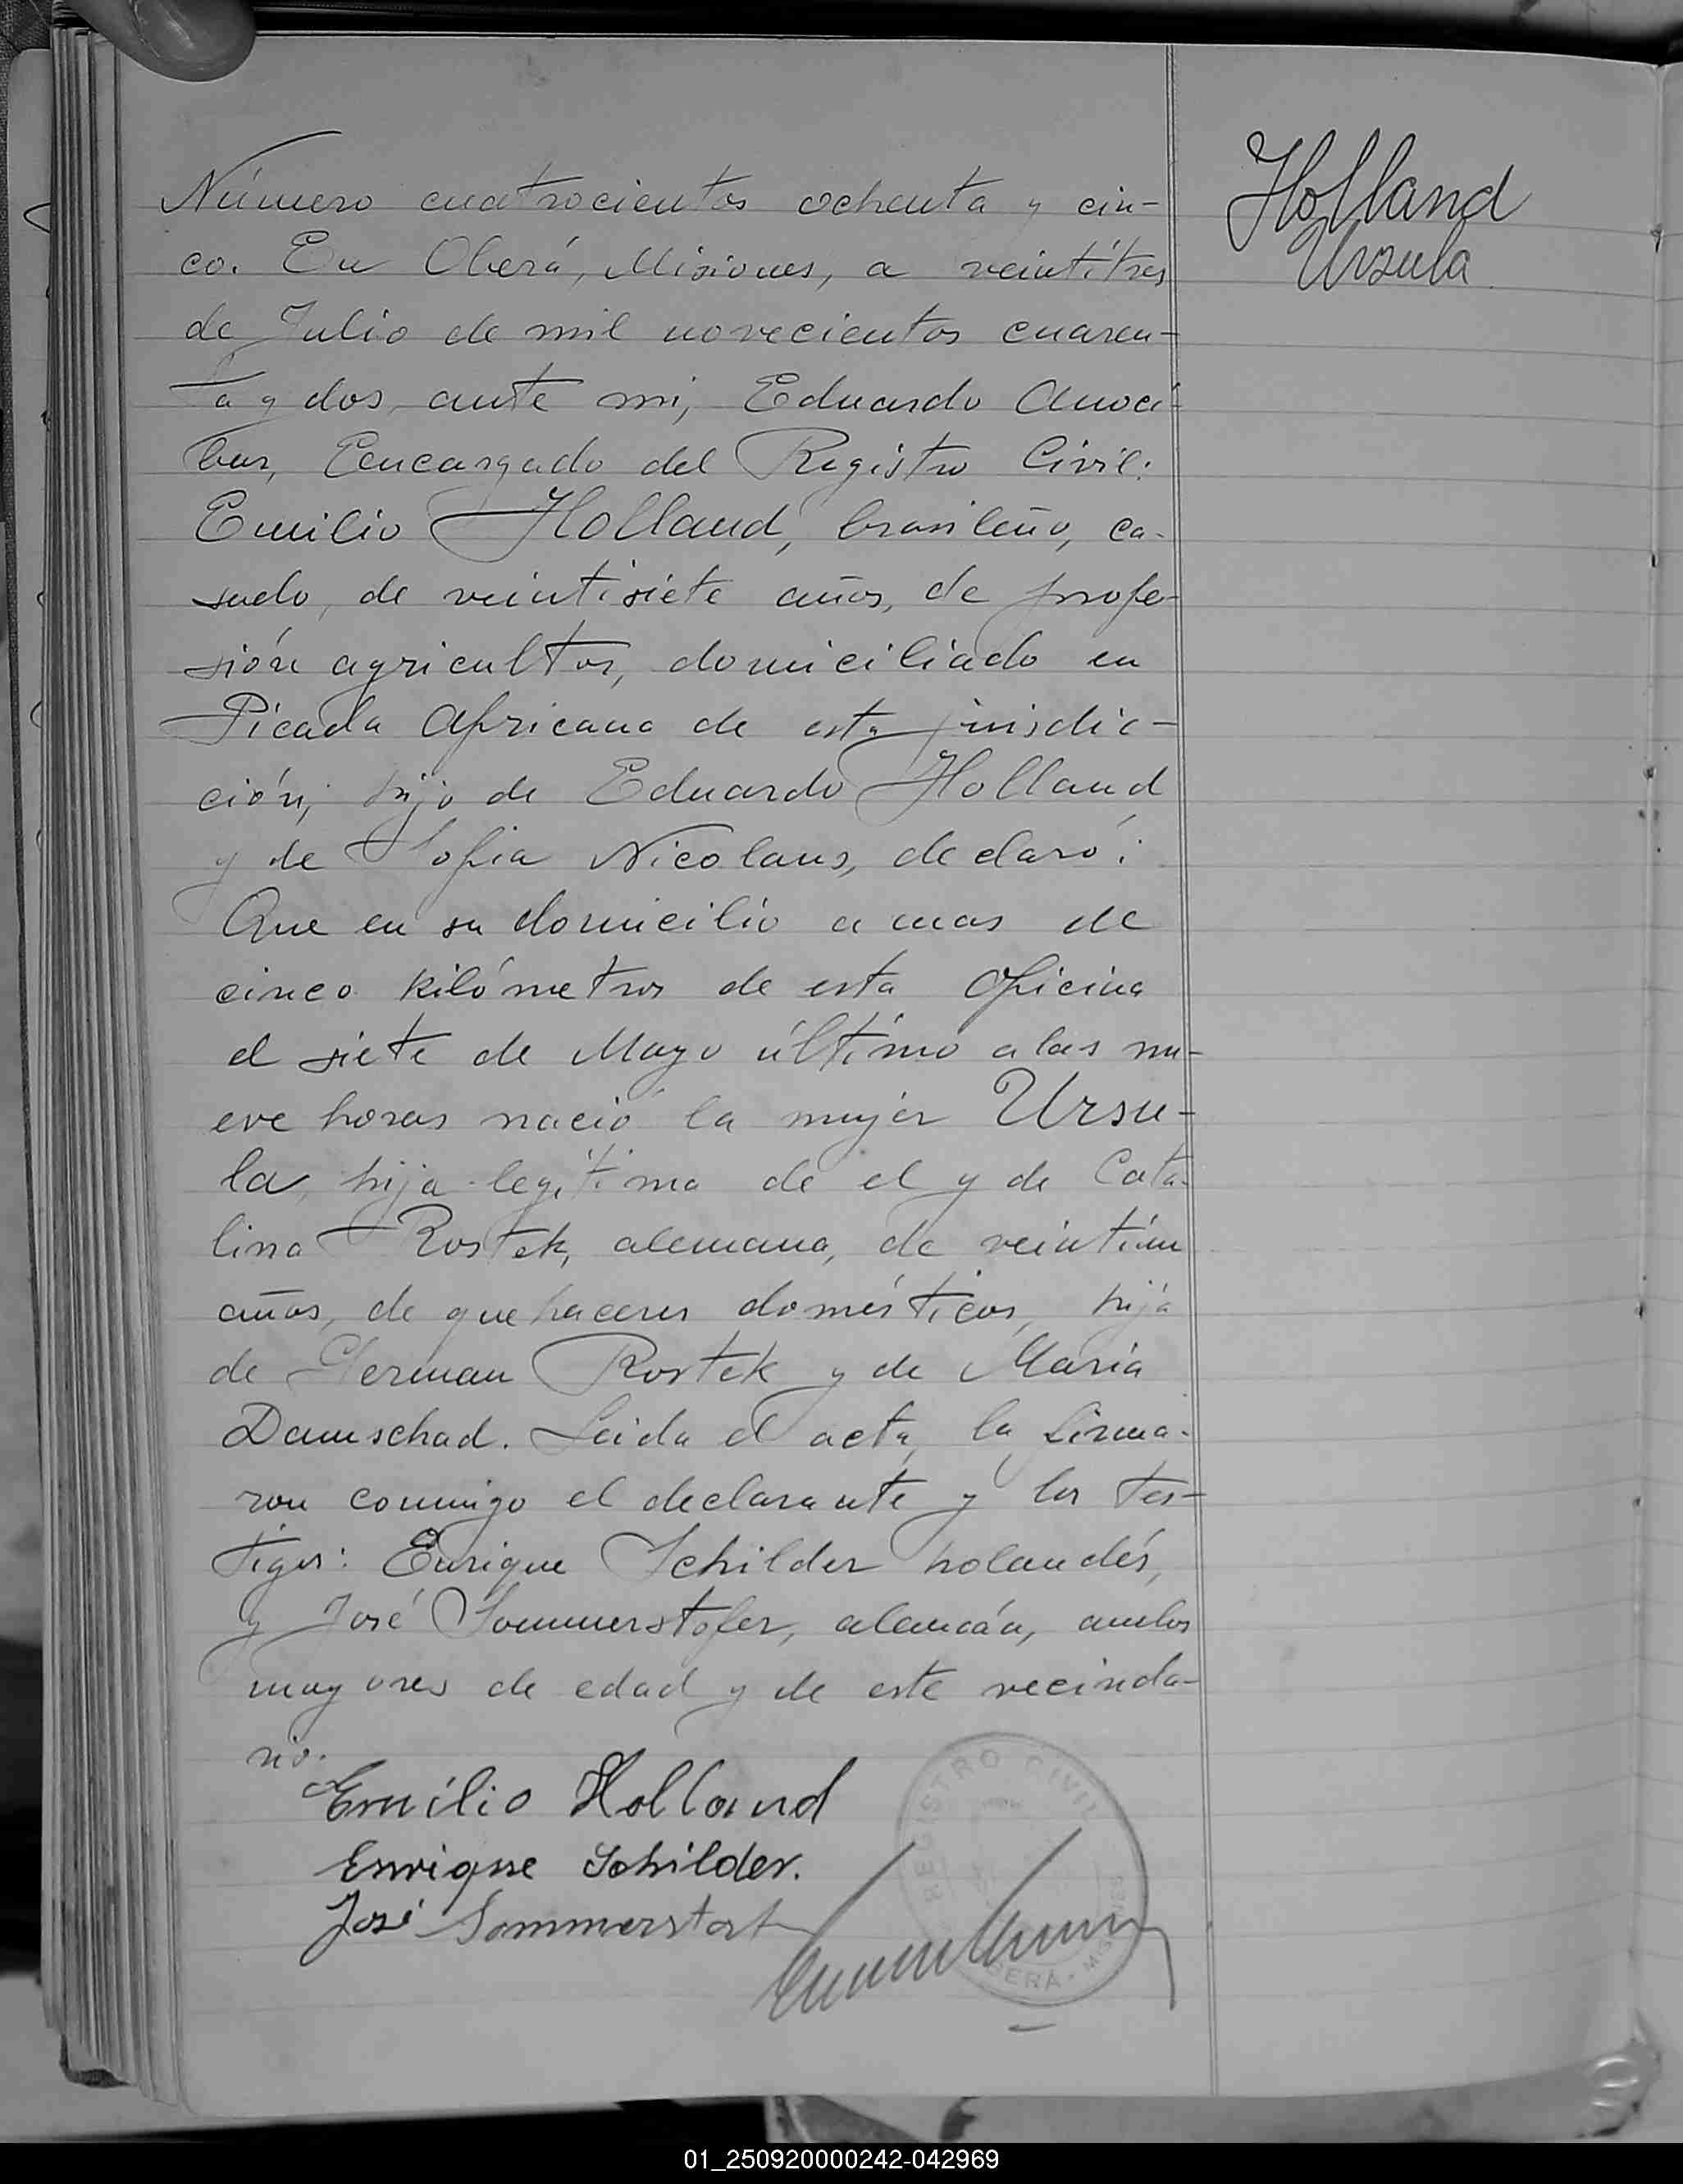 Número cuatrocientos ochenta y cin-
co. En Oberá, Misiones, a veintitres
de Julio de mil novecientos cuaren-
ta y dos, ante mi, Eduardo Anoci-
bar, Eencargado del Registro Civil:
Emilio Holland, brasileño, ca-
sado, de veintisiete años, de profe-
sión agricultor, domiciliado en
Picada Africana de esta jurisdic-
ción, hijo de Eduardo Holland
y de Sofia Nicolaus, declaró:
Que en su domicilio a mas de
cinco kilómetros de esta Oficina
el siete de Mayo último a las nu-
eve horas nació la mujer Ursu-
la, hija legítima de el y de Cata-
lina Rostek, alemana, de veintiun
años, de quehaceres domésticos, hija
de German Rostek y de Maria
Damschad. Leida el acta, la firma-
ron conmigo el declarante y los tes-
tigos: Enrique Schilder holandés,
y José Sommerstofer, alemán, ambos
mayores de edad y de este vecinda-
rio.
Emilio Holland
Enrique Schilder.
José
REGISTRO CIVIL
OBERÁ - MISIONES
Holland
Ursula
01_250920000242-042969